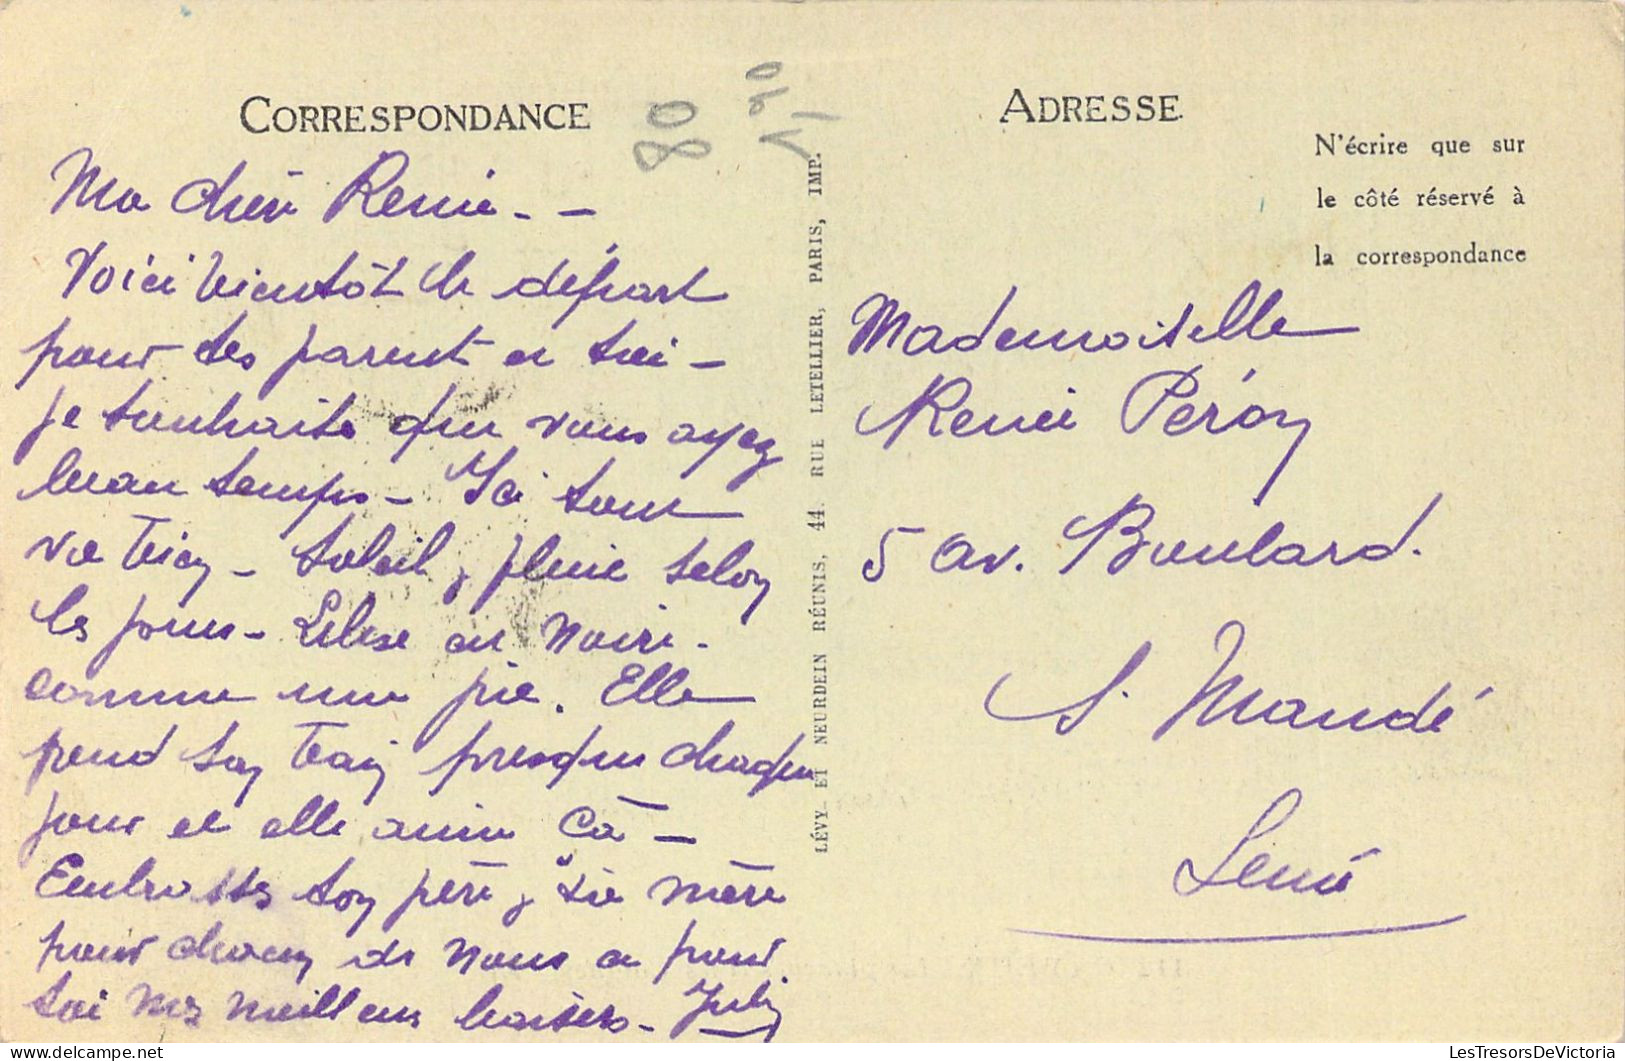 CORRESPONDANCE
Ma chère Renée - -
Voici bientôt le départ
pour tes parents et toi -
je souhaite que vous ayez
beau temps - Ici tout
va bien - Soleil, pluie selon
les jours - Lilese est noire
comme une pie. Elle
prend son bain presque chaque
jour et elle aime çà -
Embrasses ton père, ta mère
pour chacun de nous et pour
toi mes meilleurs baisers - July
80
LÉVY ET NEURDEIN RÉUNIS, 44. RUE LETELLIER, PARIS, IMP.
ADRESSE
N'écrire que sur
le côté réservé à
la correspondance
Mademoiselle
Renée Péron
5 av. Boulard.
S. Mandé
Seine
LesTresorsDeVictoria
© www.delcampe.net